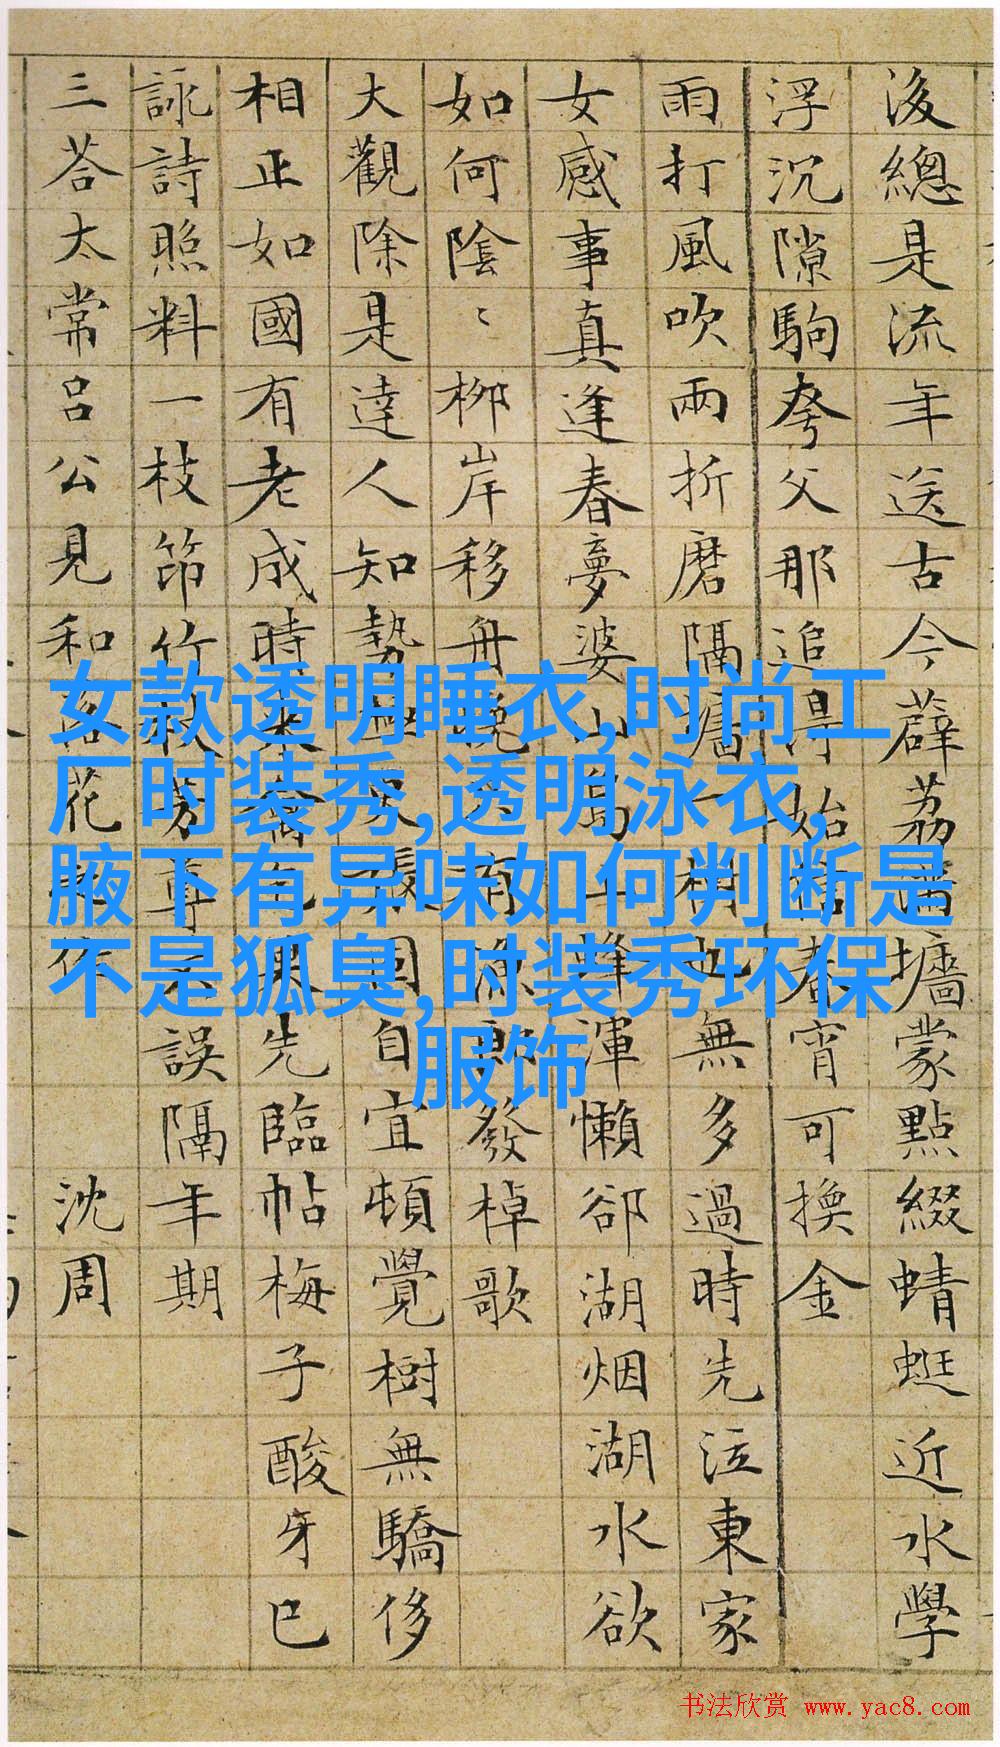 後總是流年送古今薜荔墻蒙點綴蜻蜓近水學
浮沉隙駒夸父那追得始春宵可換金
雨打風吹兩折磨隔牆一樹也無多過時先泣東家
女感事真逢春夢婆山鳥上蜂渾懶卻湖烟湖水欲
如何陰〻柳岸移舟晚有漁郎發棹歌
大觀除是達人知勢衰固自宜頓覺樹無驕侈
相正如國有老成時來禽果先臨帖梅子酸牙已
詠詩照料一枝笻竹杖芳尊誤隔年期
三荅太常呂公見和落花之作 沈周
女款透明睡衣,时尚工
厂时装秀,透明泳衣,
腋下有异味如何判断是
不是狐臭,时装秀环保
服饰
书法欣赏 www.yac8.com